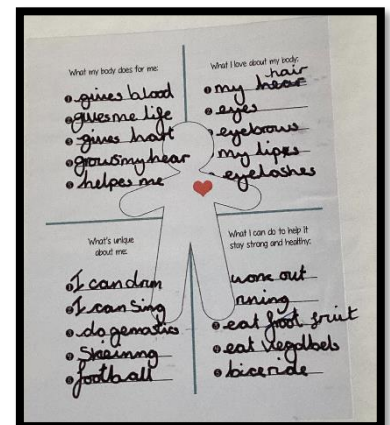 What my body does for me:
gives blood
gives me life
gives hart
grows my hear
helpes me
What I love about my body:
hair
my hear
eyes
eyebrows
my lips
eyelashes
What's unique
about me:
I can drm
I can sing
do gemastics
football
What I can do to help it
stay strong and healthy:
work out
rning
eat froot fruit
eat vegatbels
biceride